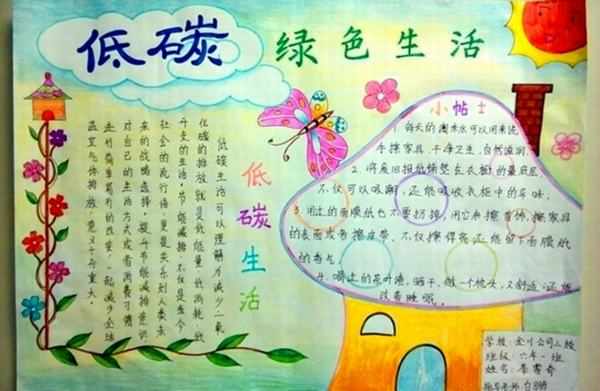 低碳
绿色生活
低碳生活可以理解为减少二氧
化碳的排放就是低能量、低消耗、低
开支的生活。节能减排，不仅是当今
社会的流行语，更是关乎到人类未
来的战略选择。提升节能减排意识
对自己的生活方式或者消费习惯
进行简单易行的改变，一起减少全球
温室气体排放，意义十分重大。
低碳生活
小帖士
1. 每天的淘米水可以用来洗
手擦家具，干净卫生，自然滋润。
2. 将废旧报纸铺垫在衣橱的最底层，
不仅可以吸潮，还能吸收衣柜中的异味。
3. 用过的面膜纸也不要扔掉，用它来擦首饰、擦家具
的表面或者擦皮带，不仅擦得亮还能留下面膜纸
的香气。
4. 喝过的茶叶渣，晒干，做一个枕头，又舒适，还能
改善睡眠。
学校：金川公司六校
班级：六年一班
姓名：
指导老师：